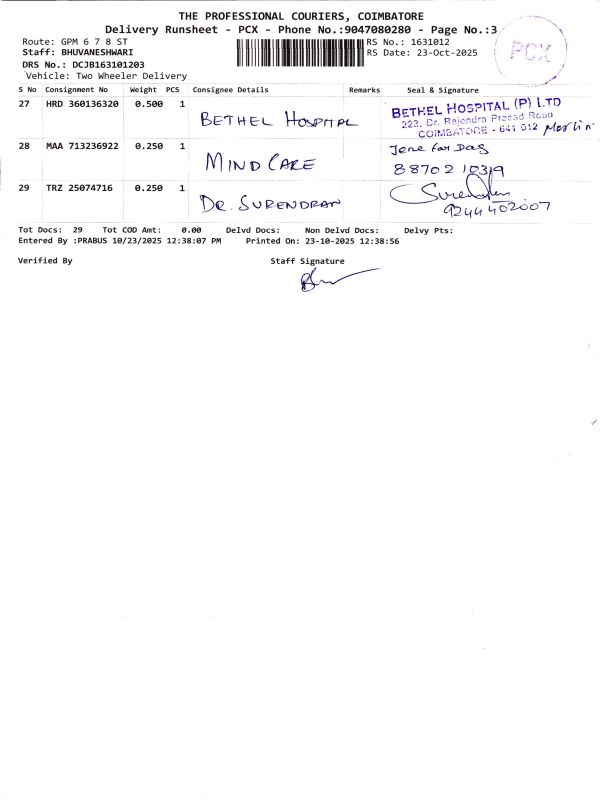 THE PROFESSIONAL COURIERS, COIMBATORE
Delivery Runsheet - PCX - Phone No.:9047080280 - Page No.:3
Route: GPM 6 7 8 ST RS No.: 1631012
Staff: BHUVANESHWARI RS Date: 23-Oct-2025
DRS No.: DCJB163101203
Vehicle: Two Wheeler Delivery
PCX
S No Consignment No Weight PCS Consignee Details Remarks Seal & Signature
27 HRD 360136320 0.500 1 BETHEL HOSPITAL
BETHEL HOSPITAL (P) LTD
223, Dr. Rajendra Prasad Road
COIMBATORE - 641 012 Merlin
28 MAA 713236922 0.250 1 MIND CARE
8870210319
29 TRZ 25074716 0.250 1 DR. SURENDRAN
Surendran
9244402007
Tot Docs: 29 Tot COD Amt: 0.00 Delvd Docs: Non Delvd Docs: Delvy Pts:
Entered By :PRABUS 10/23/2025 12:38:07 PM Printed On: 23-10-2025 12:38:56
Verified By Staff Signature